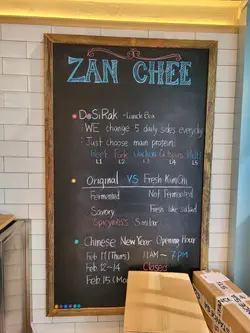 ZAN CHEE
DoSiRak - Lunch Box
: WE change 5 daily sides everyday
: Just choose main protein:
Beef Pork Chicken
L1 L2 L3 L5
Original VS Fresh Kimchi
Fermented Not Fermented
Savory Fresh like salad
Spicyness Similar
Chinese New Year Opening Hour
Feb 11 (Thurs) 11AM ~ 7PM
Feb 12~14 Closed
Feb 15 (Mo